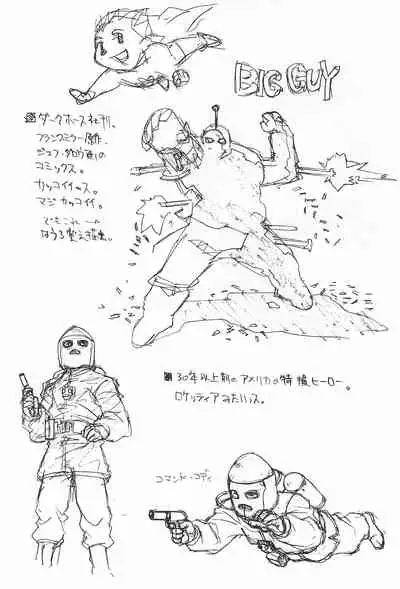 BIG GUY
ダークホース社刊。
フランクミラー原作.
ジェフ・
コミックス。
カッコイイっス。
マジカッコイイ。
でもこれ
30年以上前のアメリカの特撮ヒーロー。
ロケッティアみたいっス。
コマンド・コディ